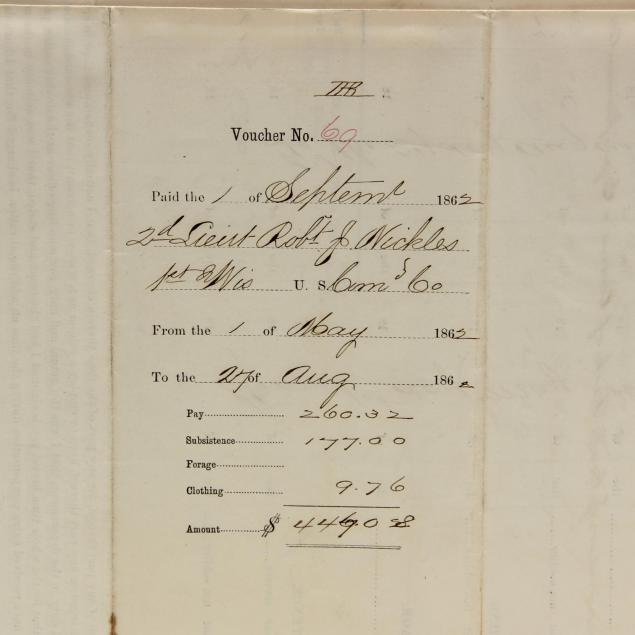 Voucher No. 69
Paid the 1 of Septemr 1862
2d Lieut Robt J Nickles
1st Wis U. S. Co
From the 1 of May 1862
To the 27 of Aug 1862
Pay 260.32
Subsistence 177.00
Forage
Clothing 9.76
Amount $ 447.08